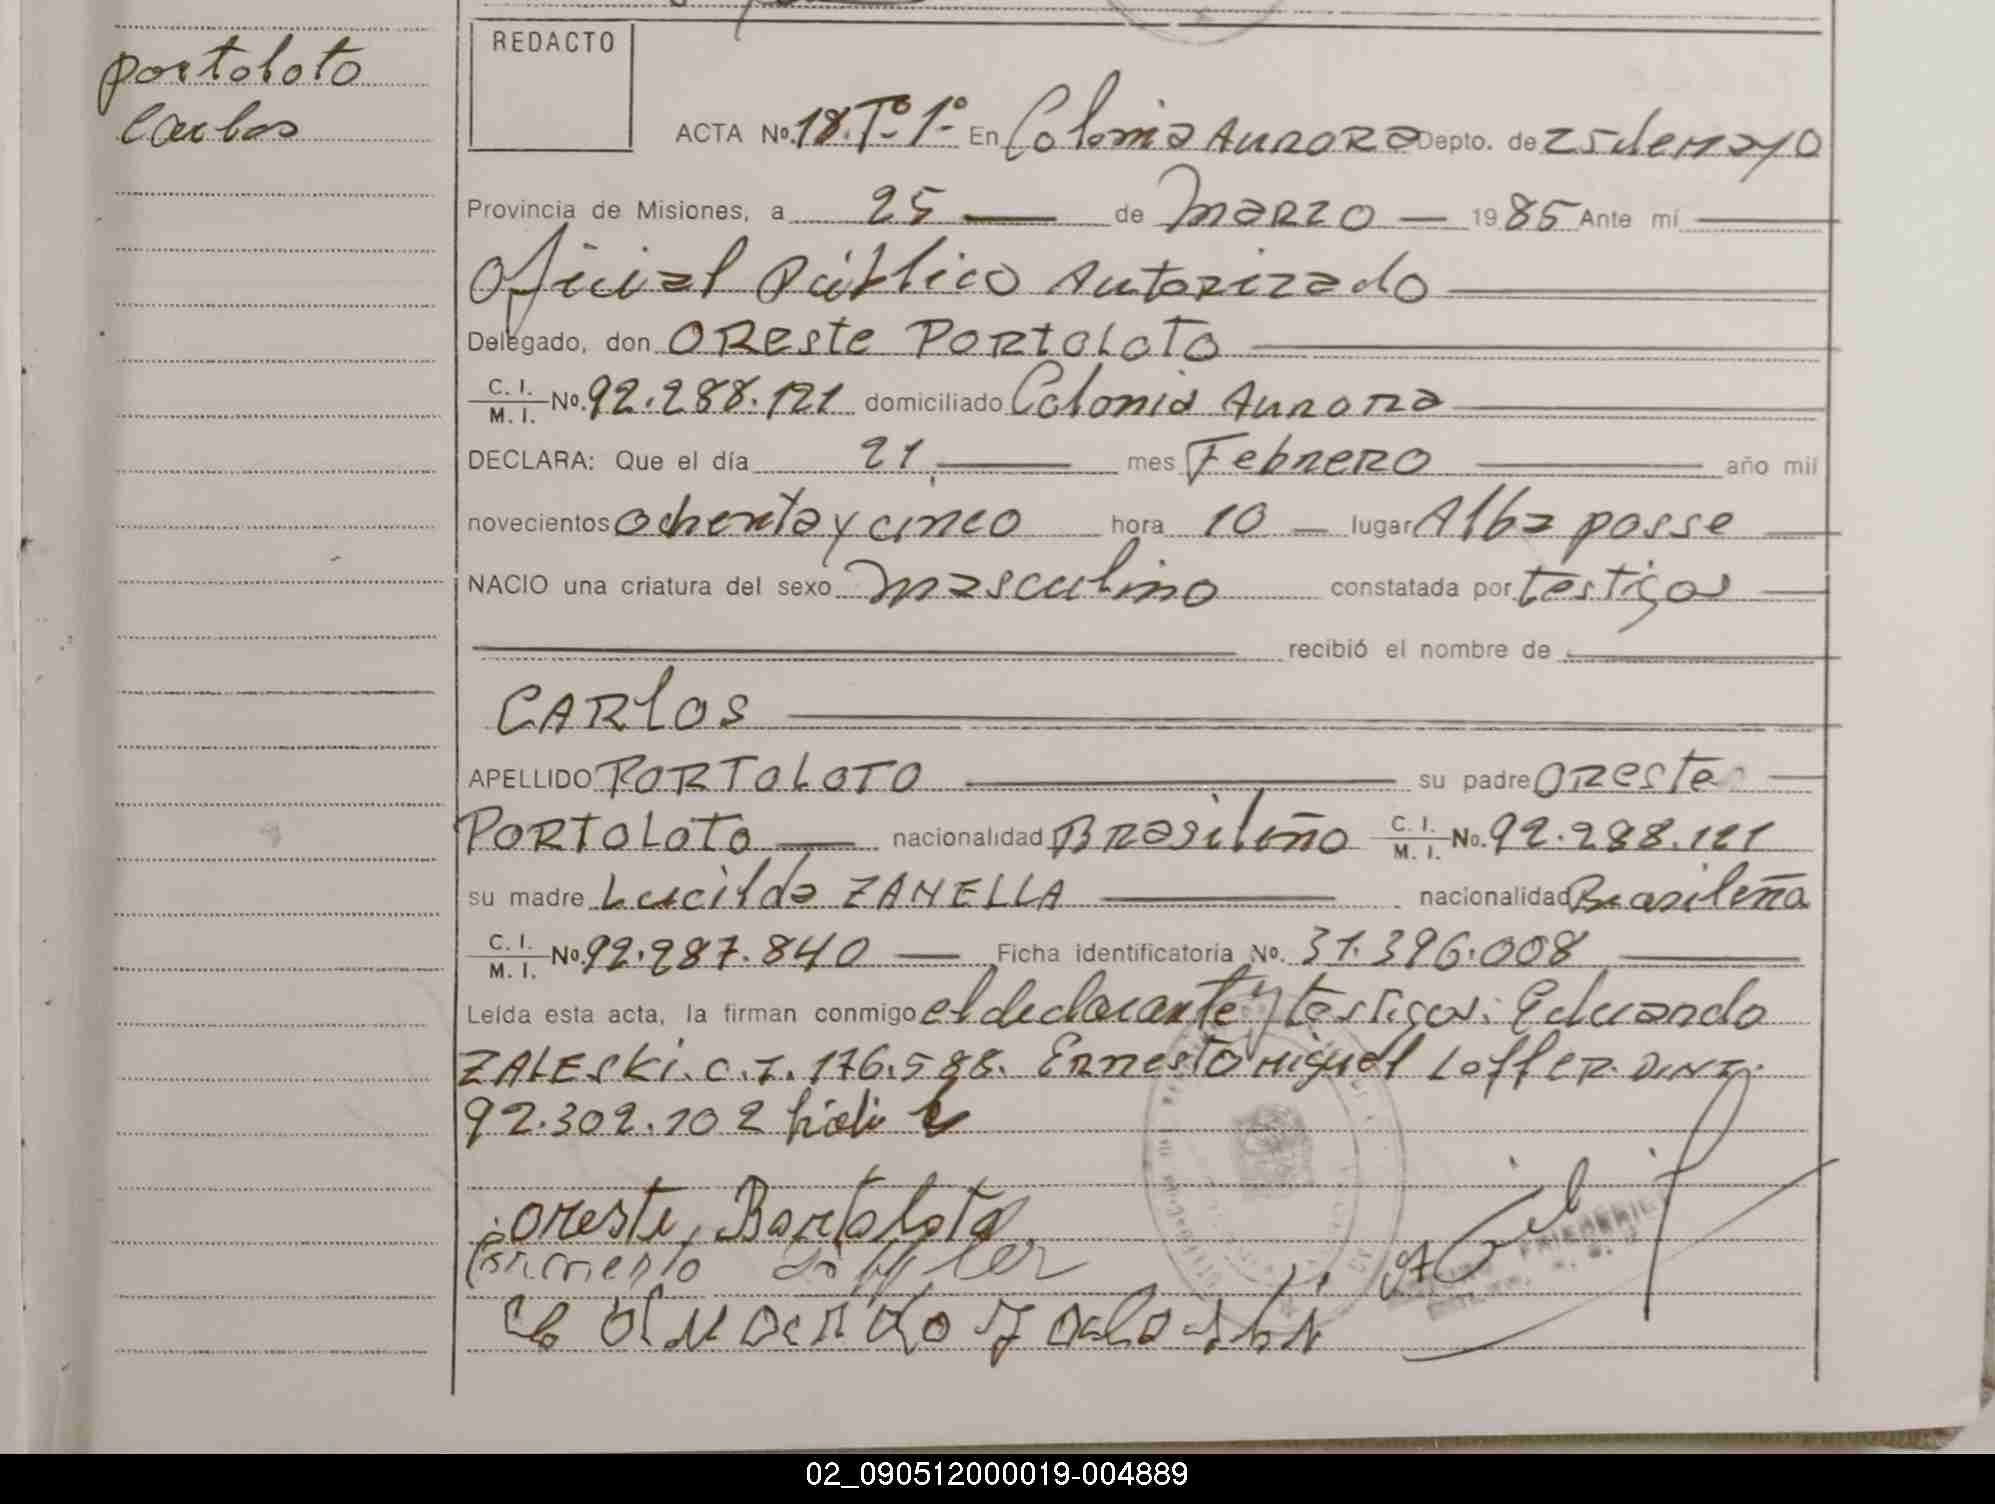 Portoloto
Carlos
REDACTO
ACTA Nº 18. Tº 1º En Colonia Aurora Depto. de 25 de Mayo
Provincia de Misiones, a 25 de Marzo 1985 Ante mí
Oficial Público Autorizado
Delegado, don Oreste Portoloto
C. I. / M. I. Nº. 92.288.121 domiciliado Colonia Aurora
DECLARA: Que el día 21, mes Febrero año mil
novecientos ochenta y cinco hora 10 lugar Alba posse
NACIO una criatura del sexo Masculino constatada por testigos
recibió el nombre de
CARLOS
APELLIDO PORTOLOTO su padre Oreste
PORTOLOTO nacionalidad Brasileño C. I. / M. I. Nº. 92.288.121
su madre Lucilda ZANELLA nacionalidad Brasileña
C. I. / M. I. Nº. 92.287.840 Ficha identificatoria Nº. 31.396.008
Leída esta acta, la firman conmigo el declarante y testigos: Eduardo
ZALESKi. C.I. 176.588. Ernesto Miguel Loffer. D.N.I.
92.302.102
oreste, Bortoloto
02_090512000019-004889